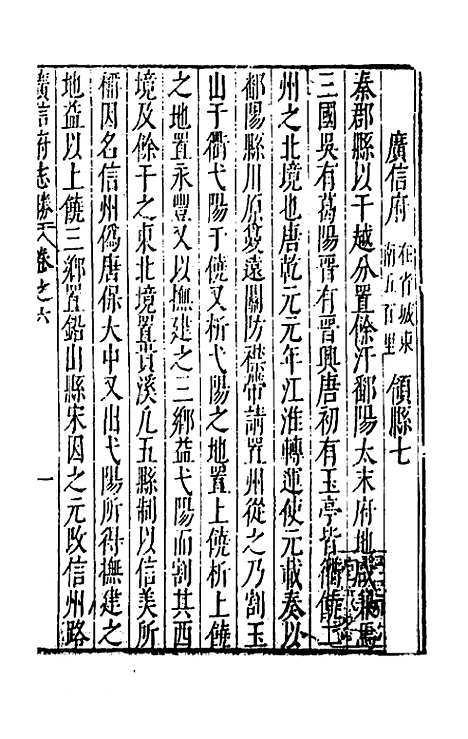 廣信府 在省城東南五百里 領縣七
秦郡縣以干越分置餘汗鄱陽太末府地咸隸焉
三國吳有葛陽晋有晋興唐初有玉亭皆衢饒二
州之北境也唐乾元元年江淮轉運使元載奏以
鄱陽縣川原夐遠關防襟帶請置州從之乃割玉
山于衢弋陽于饒又析弋陽之地置上饒析上饒
之地置永豐又以撫建之三鄉益弋陽而割其西
境及餘干之東北境置貴溪凡五縣制以信美所
稱因名信州僞唐保大中又出弋陽所得撫建之
地益以上饒三鄉置鉛山縣宋因之元改信州路
廣信府志勝 卷之六 一